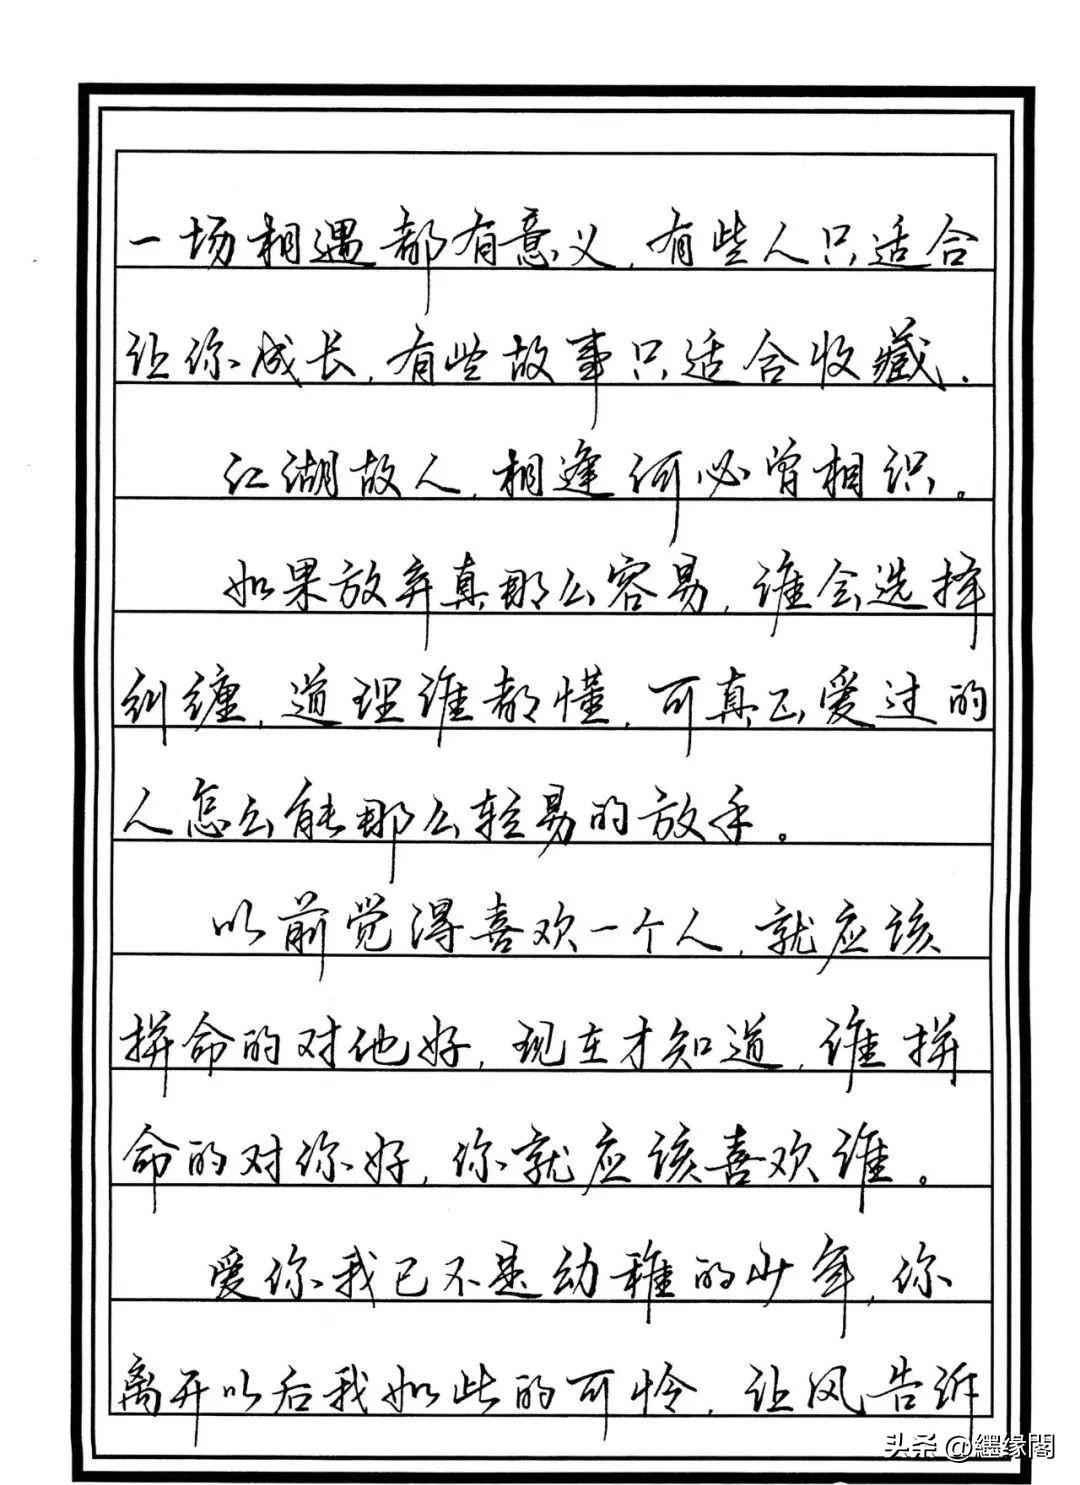 一场相遇都有意义，有些人只适合
让你成长，有些故事只适合收藏.
江湖故人，相逢何必曾相识。
如果放弃真那么容易，谁会选择
纠缠，道理谁都懂，可真正爱过的
人怎么能那么轻易的放手。
以前觉得喜欢一个人，就应该
拼命的对他好，现在才知道，谁拼
命的对你好，你就应该喜欢谁。
爱你我已不是幼稚的少年，你
离开以后我如此的可怜，让风告诉
头杀 @繼缘閣